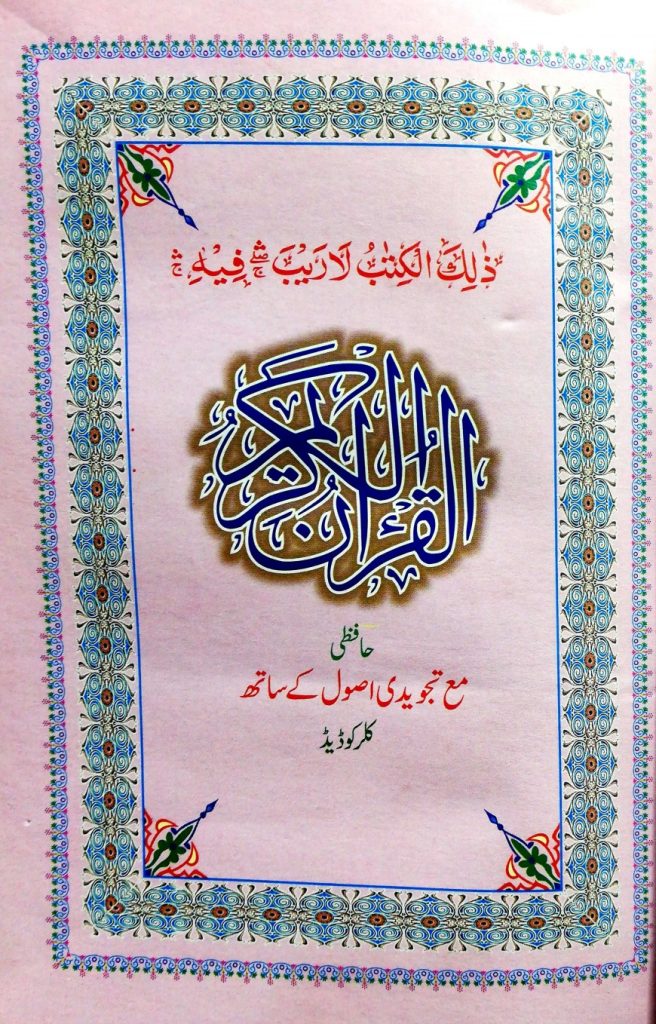 ذٰلِكَ الْكِتٰبُ لَا رَيْبَ ۛۖۚ فِيْهِ ۛۚ
القرآن الكريم
حافظی
مع تجویدی اصول کے ساتھ
کلر کوڈیڈ